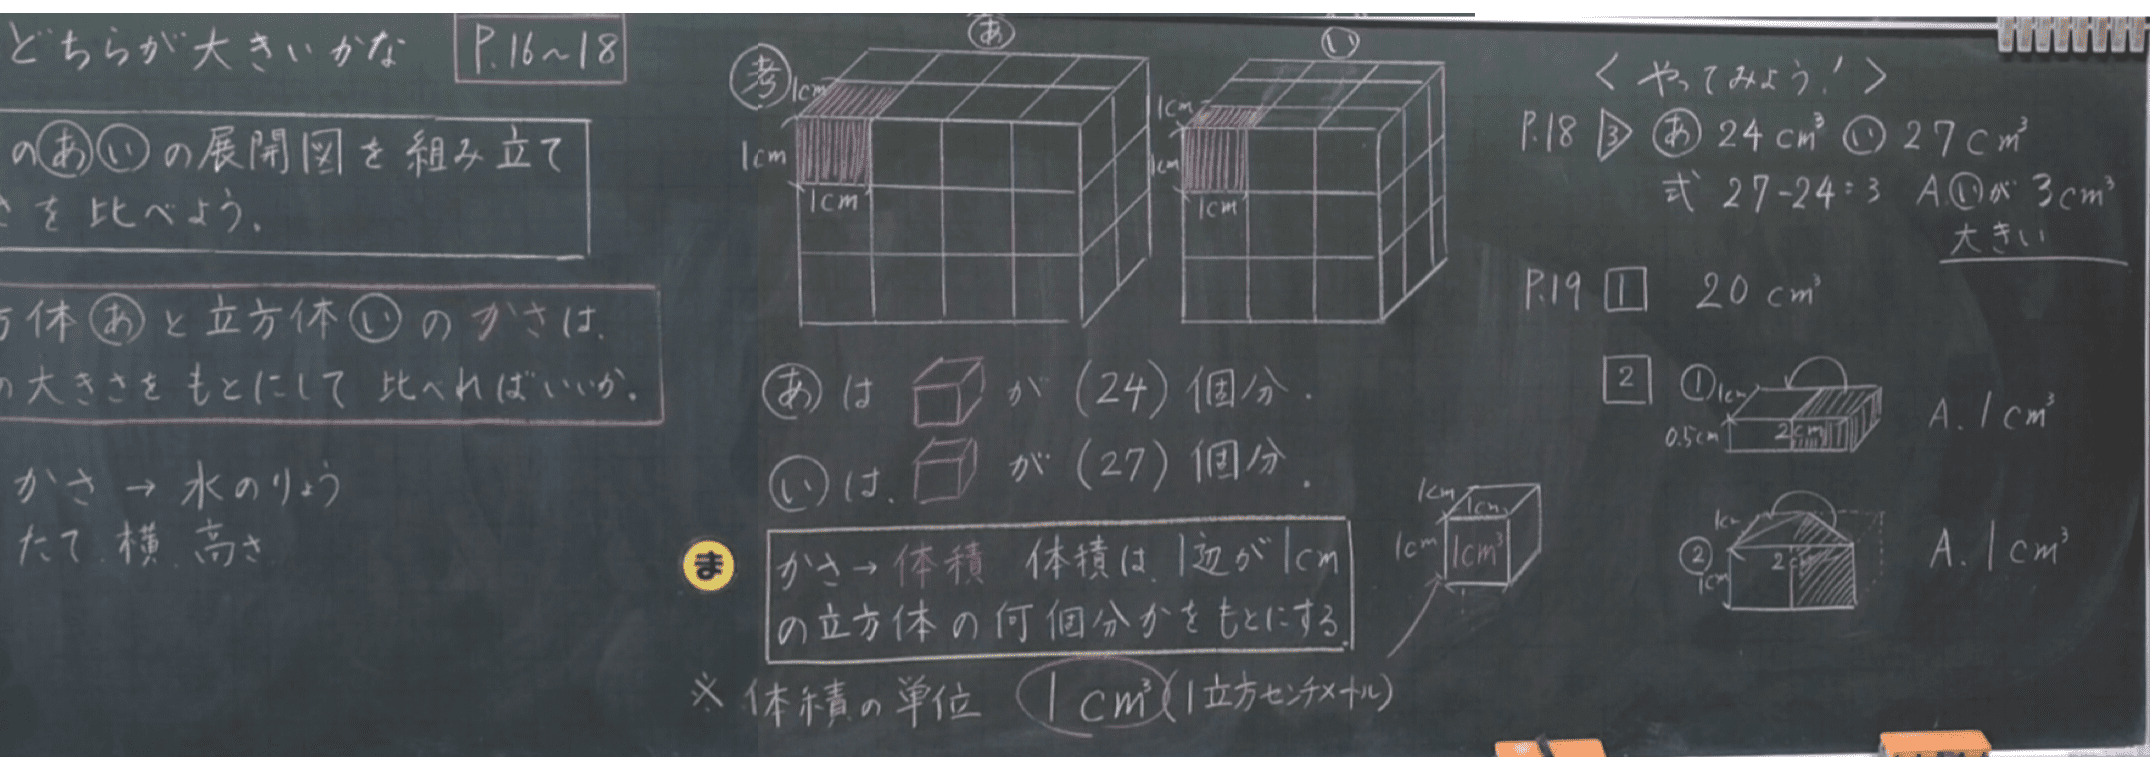 どちらが大きいかな P.16~18
のあいの展開図を組み立て
さを比べよう。
方体あと立方体いのかさは、
の大きさをもとにして比べればいいか。
かさ→水のりょう
たて、横、高さ
考
あ
1cm
1cm
1cm
い
1cm
1cm
1cm
あは が(24)個分.
いは、 が(27)個分.
ま
かさ→体積 体積は、1辺が1cm
の立方体の何個分かをもとにする.
※体積の単位 1cm³(1立方センチメートル)
1cm
1cm
1cm
1cm³
<やってみよう!>
P.18 3 あ 24cm³ い 27cm³
式 27-24=3 A.いが3cm³
大きい
P.19 1 20cm³
2 ① 1cm
0.5cm 2cm A.1cm³
② 1cm
1cm 2cm A.1cm³